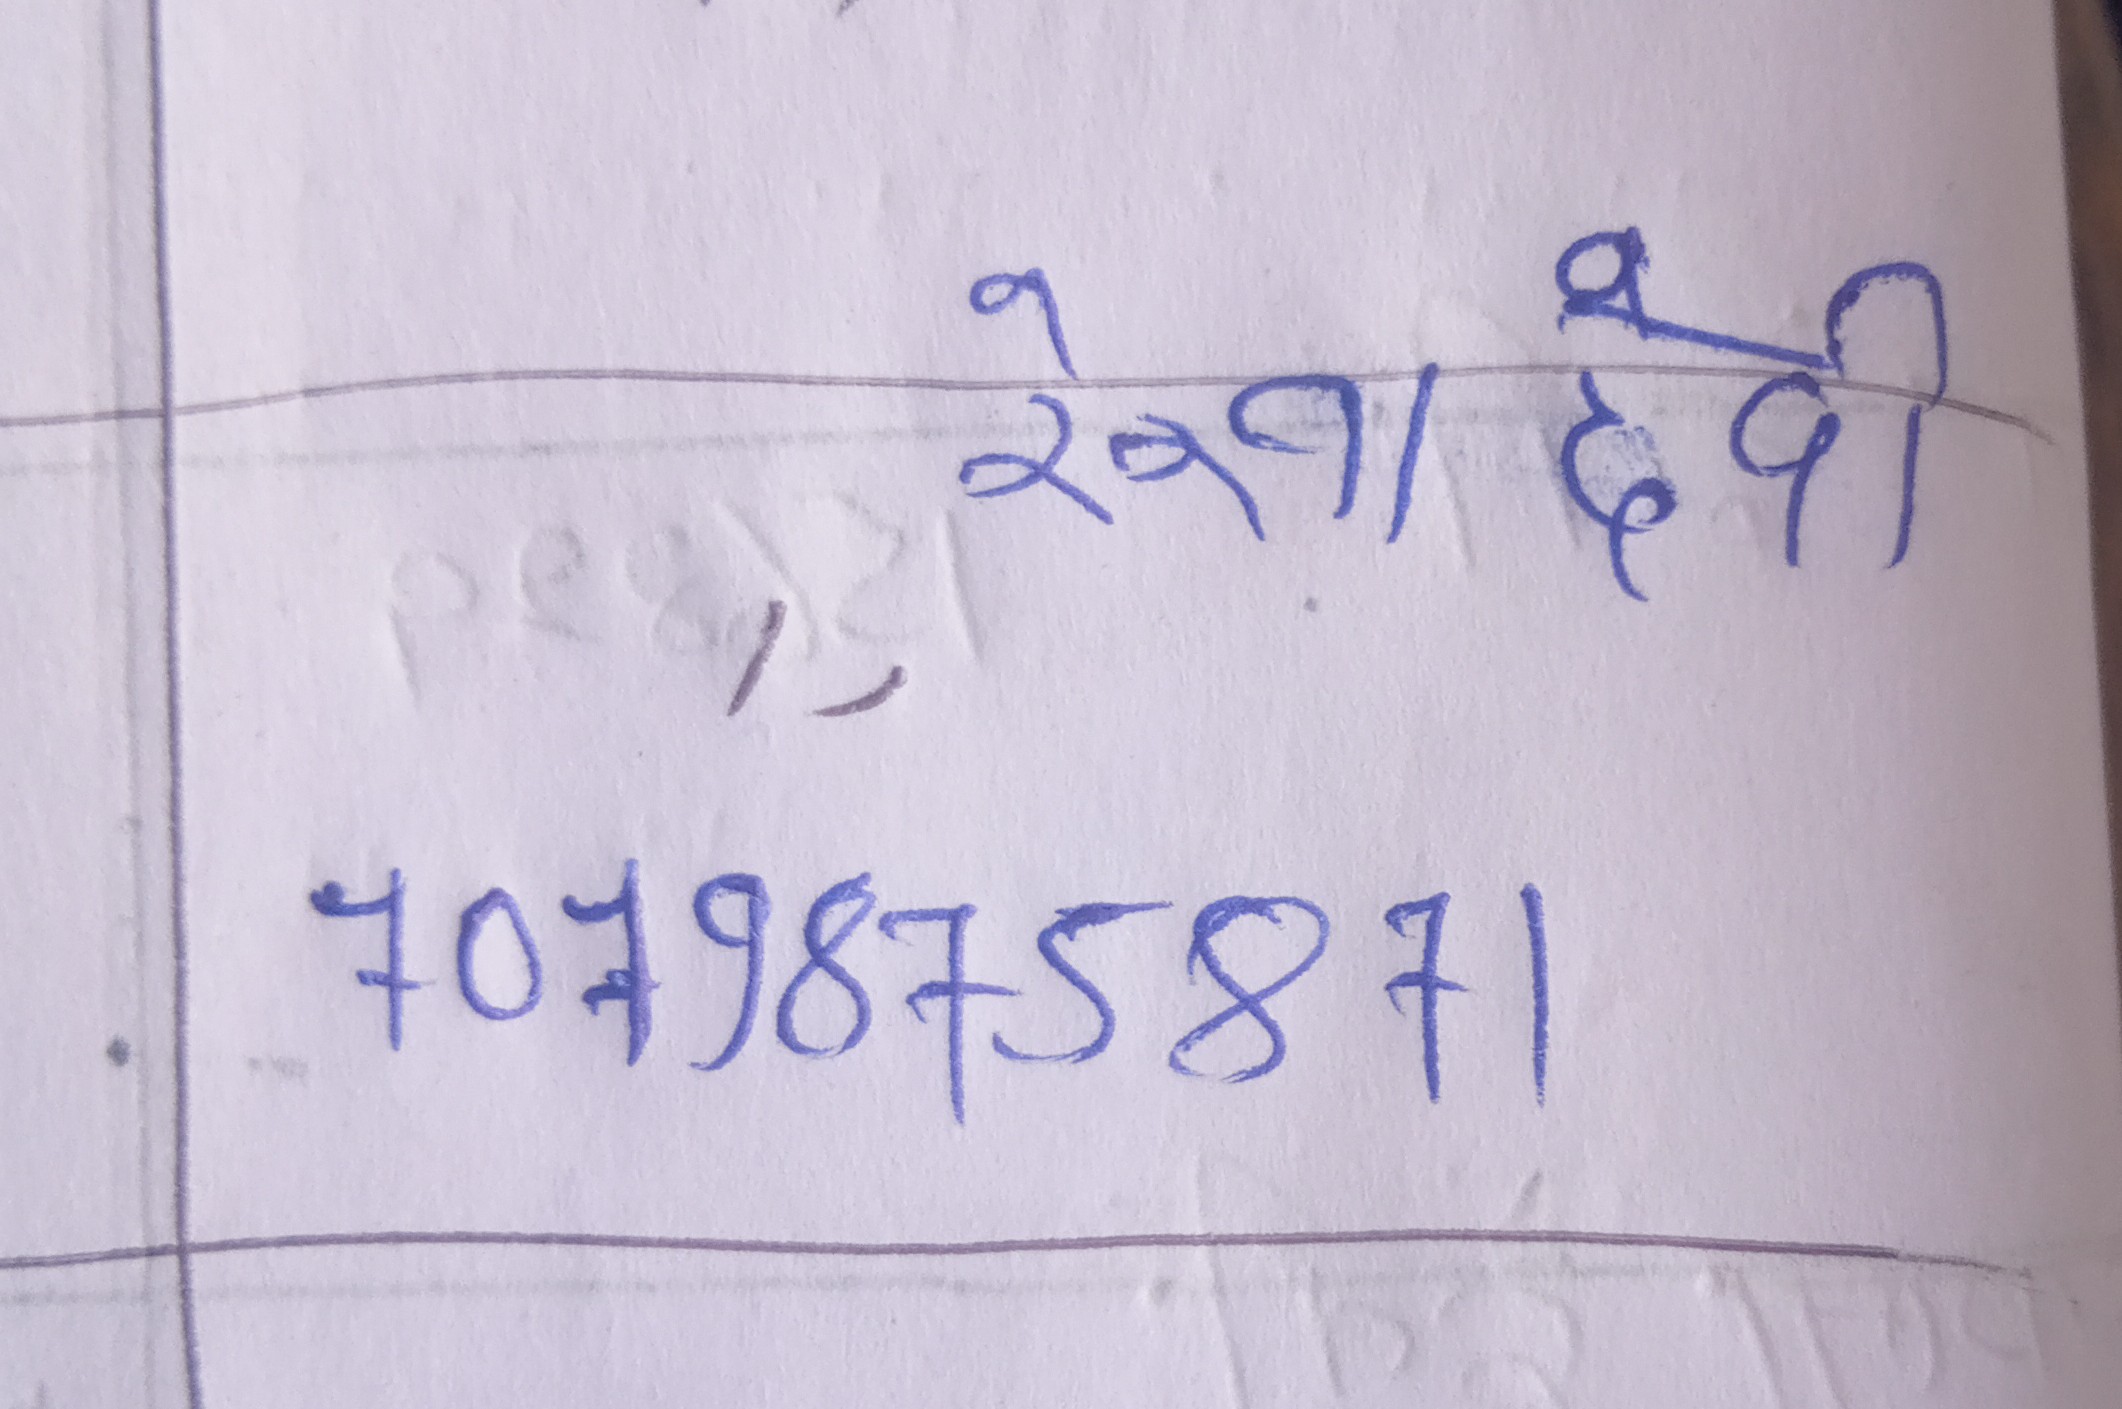 रेखा देवी
7079875871